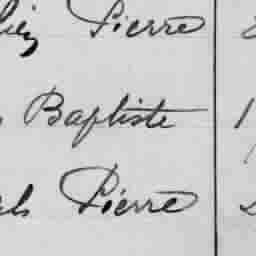 Pierre
Baptiste
Pierre